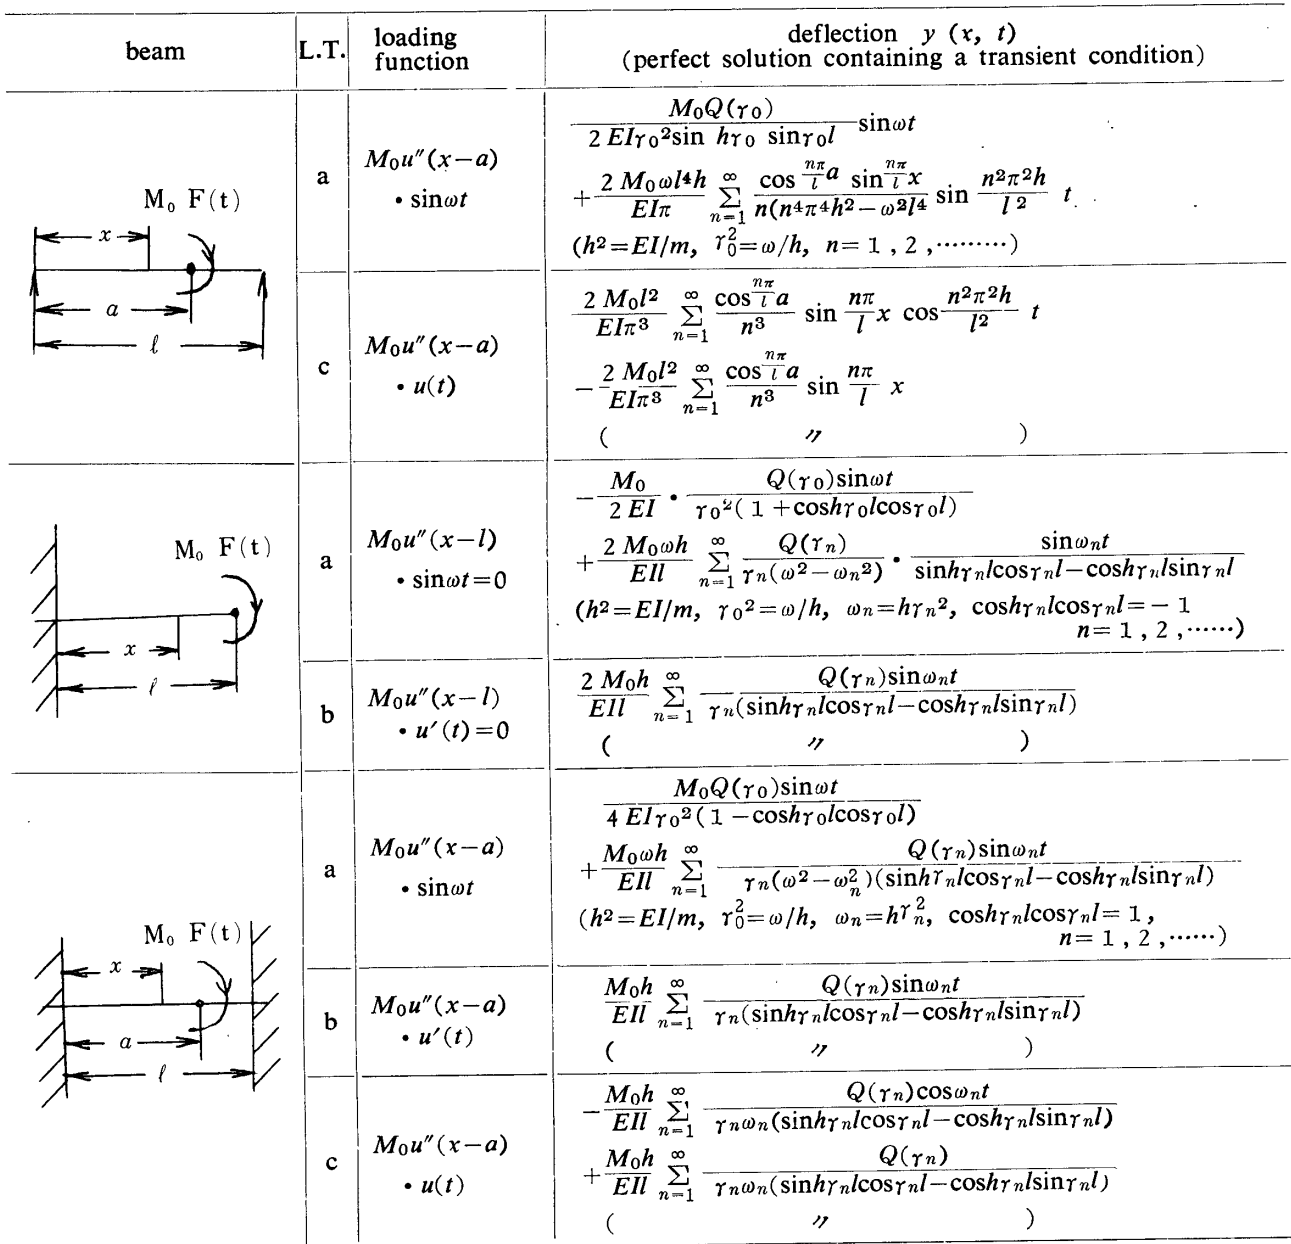 beam L.T. loading function deflection y (x, t) (perfect solution containing a transient condition)
M₀ F(t)
x
a
ℓ
a
M₀u″(x−a)
• sinωt
M₀Q(γ₀) / 2EIγ₀²sin hγ₀ sinγ₀l sinωt
+ 2M₀ωl⁴h / EIπ ∑_{n=1}^{∞} cos nπ/l a sin nπ/l x / n(n⁴π⁴h²−ω²l⁴ sin n²π²h / l² t
(h²=EI/m, γ₀²=ω/h, n= 1 , 2 ,·········)
c
M₀u″(x−a)
• u(t)
2M₀l² / EIπ³ ∑_{n=1}^{∞} cos nπ/l a / n³ sin nπ/l x cos n²π²h / l² t
− 2M₀l² / EIπ³ ∑_{n=1}^{∞} cos nπ/l a / n³ sin nπ/l x
( 〃 )
M₀ F(t)
x
ℓ
a
M₀u″(x−l)
• sinωt=0
− M₀ / 2EI • Q(γ₀)sinωt / γ₀²( 1 +coshγ₀lcosγ₀l)
+ 2M₀ωh / EIl ∑_{n=1}^{∞} Q(γn) / γn(ω²−ωn²) • sinωnt / sinhγnlcosγnl−coshγnlsinγnl
(h²=EI/m, γ₀²=ω/h, ωn=hγn², coshγnlcosγnl=− 1
n= 1 , 2 ,······)
b
M₀u″(x−l)
• u′(t)=0
2M₀h / EIl ∑_{n=1}^{∞} Q(γn)sinωnt / γn(sinhγnlcosγnl−coshγnlsinγnl)
( 〃 )
M₀ F(t)
x
a
ℓ
a
M₀u″(x−a)
• sinωt
M₀Q(γ₀)sinωt / 4EIγ₀²( 1 −coshγ₀lcosγ₀l)
+ M₀ωh / EIl ∑_{n=1}^{∞} Q(γn)sinωnt / γn(ω²−ωn²)(sinhγnlcosγnl−coshγnlsinγnl)
(h²=EI/m, γ₀²=ω/h, ωn=hγn², coshγnlcosγnl= 1 ,
n= 1 , 2 ,······)
b
M₀u″(x−a)
• u′(t)
M₀h / EIl ∑_{n=1}^{∞} Q(γn)sinωnt / γn(sinhγnlcosγnl−coshγnlsinγnl)
( 〃 )
c
M₀u″(x−a)
• u(t)
− M₀h / EIl ∑_{n=1}^{∞} Q(γn)cosωnt / γnωn(sinhγnlcosγnl−coshγnlsinγnl)
+ M₀h / EIl ∑_{n=1}^{∞} Q(γn) / γnωn(sinhγnlcosγnl−coshγnlsinγnl)
( 〃 )